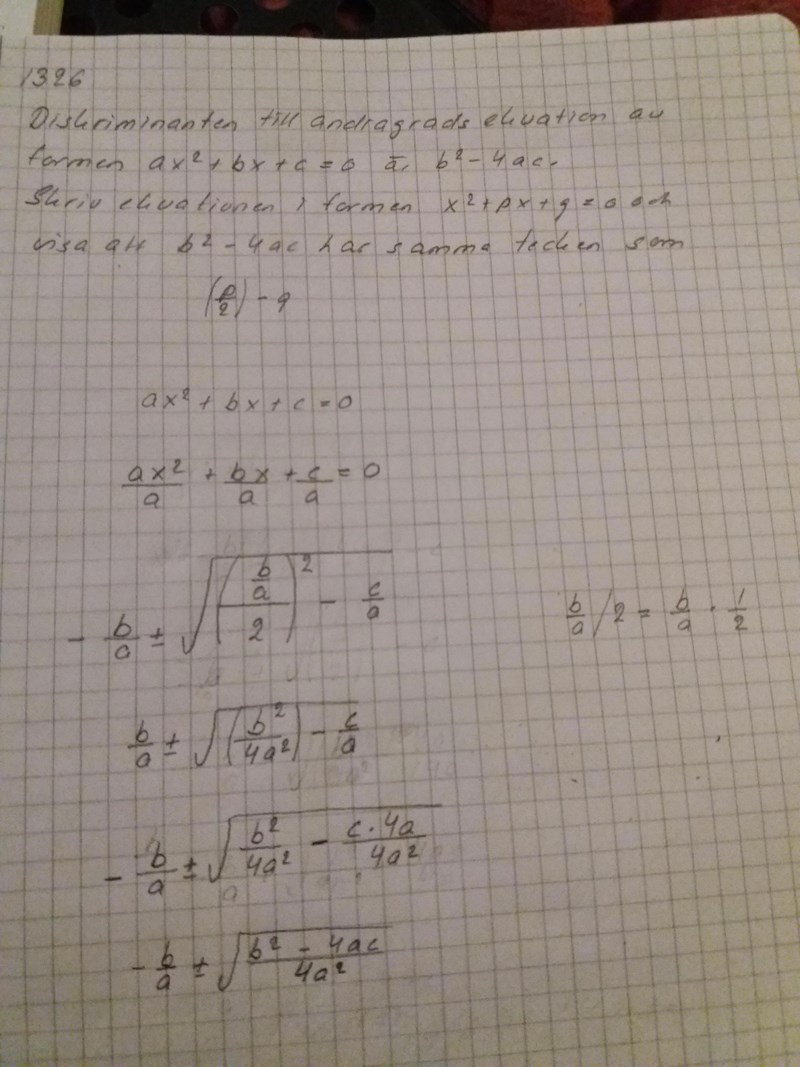 1326
Diskriminanten till andragrads ekvation av
formen ax² + bx + c = 0 ä, b² - 4ac.
Skriv ekvationen i formen x² + px + q = 0 och
visa att b² - 4ac har samma tecken som
(p/2) - q
ax² + bx + c = 0
ax²/a + bx/a + c/a = 0
- b/a ± √(((b/a)/2)² - c/a)
b/a / 2 = b/a · 1/2
b/a ± √((b²/4a²) - c/a)
- b/a ± √(b²/4a² - c·4a/4a²)
- b/a ± √((b² - 4ac)/4a²)